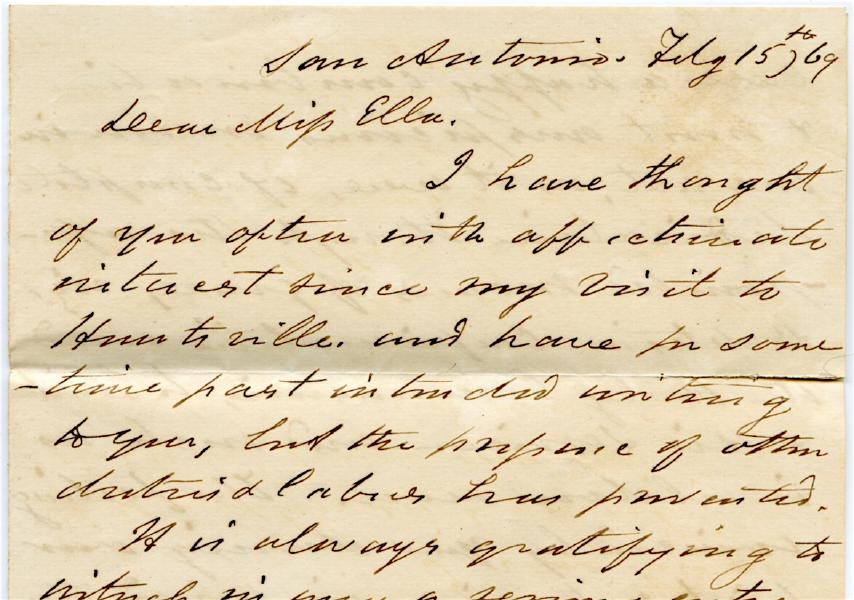 San Antonio. Feby 15th, 69
Dear Miss Ella.
I have thought
of you often with affectionate
interest since my visit to
Huntsville. and have for some
-time past intended writing
to you, but the pressure of other
duties & labors has prevented.
It is always gratifying to
witness in any a serious